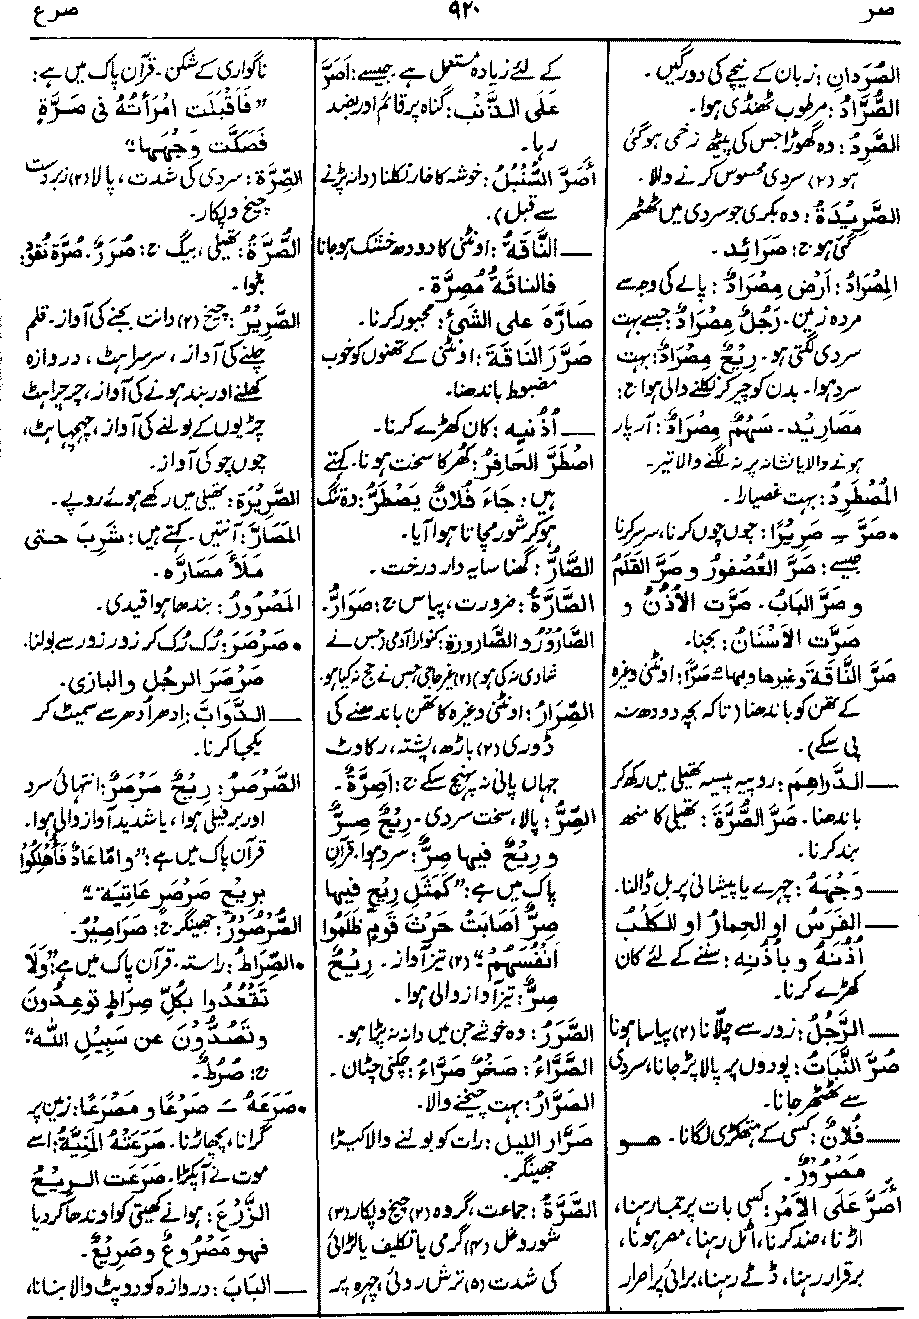 صر ۹۲۰ صرع
الصُّرَدانِ: زبان کے نیچے کی دو رگیں۔
الصُّرَّادُ: مرطوب ٹھنڈی ہوا۔
الصَّرِدُ: وہ گھوڑا جس کی پیٹھ زخمی ہو گئی
ہو (۲) سردی محسوس کرنے والا۔
الصَّرِيْدَةُ: وہ بکری جو سردی میں ٹھٹھر
گئی ہو ج: صَرَائِد۔
المِصْرَادُ: اَرْض مِصْرَادٌ: پالے کی وجہ سے
مردہ زمین۔ رَجُلٌ مِصْرَادٌ: جسے بہت
سردی لگتی ہو۔ رِيْحٌ مِصْرَادٌ: بہت
سرد ہوا۔ بدن کو چیر کر نکلنے والی ہوا ج:
مَصَارِيْد۔ سَهْمٌ مِصْرَادٌ: آرپار
ہونے والا یا نشانہ پر نہ لگنے والا تیر۔
المُصْطَرِدُ: بہت غصیلا۔
• صَرَّ ـِ صَرِيْرًا: چوں چوں کرنا، سرسر کرنا
جیسے: صَرَّ العُصْفُورُ و صَرَّ القَلَمُ
و صَرَّ البَابُ۔ صَرَّت الأُذُنُ و
صَرَّت الاَسْنَانُ: بجنا۔
صَرَّ النَّاقَةَ وغيرها وبها ـُ صَرًّا: اونٹنی وغیرہ
کے تھن کو باندھنا (تاکہ بچہ دودھ نہ
پی سکے)۔
ــــ الدَّرَاهِمَ: روپیہ پیسہ تھیلی میں رکھ کر
باندھنا۔ صَرَّ الصُّرَّةَ: تھیلی کا منھ
بند کرنا۔
ــــ وَجْهَهُ: چہرے یا پیشانی پر بل ڈالنا۔
ــــ الفَرَسُ او الحِمارُ او الكَلْبُ
أُذُنَهُ و بأُذُنِهِ: سننے کے لئے کان
کھڑے کرنا۔
ــــ الرَّجُلُ: زور سے چلّانا (۲) پیاسا ہونا
صُرَّ النَّبَاتُ: پودوں پر پالا پڑ جانا، سردی
سے ٹھٹھر جانا۔
ــــ فُلَانٌ: کسی کے ہتھکڑی لگانا۔ هو
مَصْرُوْرٌ۔
أَصَرَّ عَلَى الأَمْرِ: کسی بات پر جما رہنا،
اڑنا، ضد کرنا، اٹل رہنا، مصر ہونا،
برقرار رہنا، ڈٹے رہنا، برائی پر اصرار
کے لئے زیادہ مستعمل ہے جیسے: اَصَرَّ
عَلَى الذَّنْبِ: گناہ پر قائم اور بضد
رہا۔
أَصَرَّ السُّنْبُلُ: خوشہ کا خار نکلنا (دانہ پڑنے
سے قبل)۔
ــــ النَّاقَةُ: اونٹنی کا دودھ خشک ہو جانا
فالناقَةُ مُصِرَّة۔
صَارَّهُ على الشيئ: مجبور کرنا۔
صَرَّرَ النَّاقَةَ: اونٹنی کے تھنوں کو خوب
مضبوط باندھنا۔
ــــ أُذُنَيه: کان کھڑے کرنا۔
اصْطَرَّ الحَافِرُ: کھر کا سخت ہونا۔ کہتے
ہیں: جَاءَ فُلَانٌ يَصْطَرُّ: وہ تنگ
ہو کر شور مچاتا ہوا آیا۔
الصَّارُّ: گھنا سایہ دار درخت۔
الصَّارَّةُ: ضرورت، پیاس ج: صَوَارُّ۔
الصَّارُوْرُ و الصَّارُورَة: کنوارا آدمی (جس نے
شادی نہ کی ہو) (۲) غیر حاجی (جس نے حج نہ کیا ہو)۔
الصِّرَارُ: اونٹنی وغیرہ کا تھن باندھنے کی
ڈوری (۲) باڑھ، پشتہ، رکاوٹ
جہاں پانی نہ پہنچ سکے ج: اَصِرَّةٌ۔
الصِّرُّ: پالا، سخت سردی۔ رِيْحٌ صِرٌّ
و رِيْحٌ فيها صِرٌّ: سرد ہوا۔ قرآن
پاک میں ہے: "كَمَثَلِ رِيْحٍ فِيها
صِرٌّ اَصَابَتْ حَرْثَ قَوْمٍ ظَلَمُوا
اَنْفُسَهُمْ" (۲) تیز آواز۔ رِيْحٌ
صِرٌّ: تیز آواز والی ہوا۔
الصَّرَرُ: وہ خوشے جن میں دانہ نہ پڑا ہو۔
الصَّرَّاءُ: صَخْرٌ صَرَّاءُ: چکنی چٹان۔
الصَرَّارُ: بہت چیخنے والا۔
صَرَّار الليل: رات کو بولنے والا کیڑا
جھینگر۔
الصَّرَّةُ: جماعت، گروہ (۲) چیخ و پکار (۳)
شور و غل (۴) گرمی یا تکلیف یا لڑائی
کی شدت (۵) ترش روئی، چہرہ پر
ناگواری کے شکن۔ قرآن پاک میں ہے:
"فَاَقْبَلَت امْرَأَتُهُ فى صَرَّةٍ
فَصَكَّت وَجْهَهَا"
الصِّرَّة: سردی کی شدت، پالا (۲) زبردست
چیخ و پکار۔
الصُّرَّةُ: تھیلی، بیگ ج: صُرَرٌ۔ صُرَّة نقود:
بٹوا۔
الصَّرِيْرُ: چیخ (۲) دانت بجنے کی آواز۔ قلم
چلنے کی آواز، سرسراہٹ، دروازہ
کھلنے اور بند ہونے کی آواز، چرچراہٹ
چڑیوں کے بولنے کی آواز، چہچہاہٹ،
چوں چوں کی آواز۔
الصَّرِيْرَة: تھیلی میں رکھے ہوئے روپے۔
المَصَارُّ: آنتیں۔ کہتے ہیں: شَرِبَ حتى
مَلأَ مَصَارَّه۔
المَصْرُورُ: بندھا ہوا قیدی۔
• صَرْصَرَ: رک رک کر زور زور سے بولنا۔
صَرْصَرَ الرجُل والبازى۔
ــــ الدَّوَابَّ: ادھر اُدھر سے سمیٹ کر
یکجا کرنا۔
الصَّرْصَرُ: رِيْحٌ صَرْصَرٌ: انتہائی سرد
اور برفیلی ہوا، یا شدید آواز والی ہوا۔
قرآن پاک میں ہے: "وامّا عَادٌ فَأُهْلِكُوْا
بِرِيْحٍ صَرْصَرٍ عَاتِيَة"
الصُّرْصُوْرُ: جھینگر ج: صَرَاصِيْرُ۔
• الصِّرَاطُ: راستہ۔ قرآن پاک میں ہے: "وَلَا
تَقْعُدُوا بِكُلِّ صِرَاطٍ تُوْعِدُوْنَ
وتَصُدُّوْنَ عن سَبِيْلِ الله"
ج: صُرُطٌ۔
• صَرَعَهُ ـَ صَرْعًا و مَصْرَعًا: زمین پر
گرانا، پچھاڑنا۔ صَرَعَتْهُ المَنِيَّةُ: اسے
موت نے آپکڑا۔ صَرَعَت الرِيْحُ
الزَّرْعَ: ہوا نے کھیتی کو اوندھا کردیا
فهو مَصْرُوعٌ و صَرِيْعٌ۔
ــــ البَابَ: دروازہ کو دو پٹ والا بنانا،